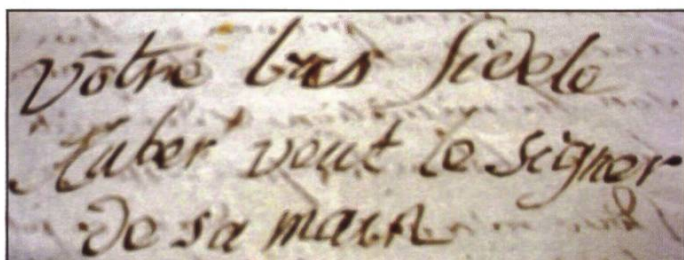 vôtre tres fidele
veut le signer
de sa main